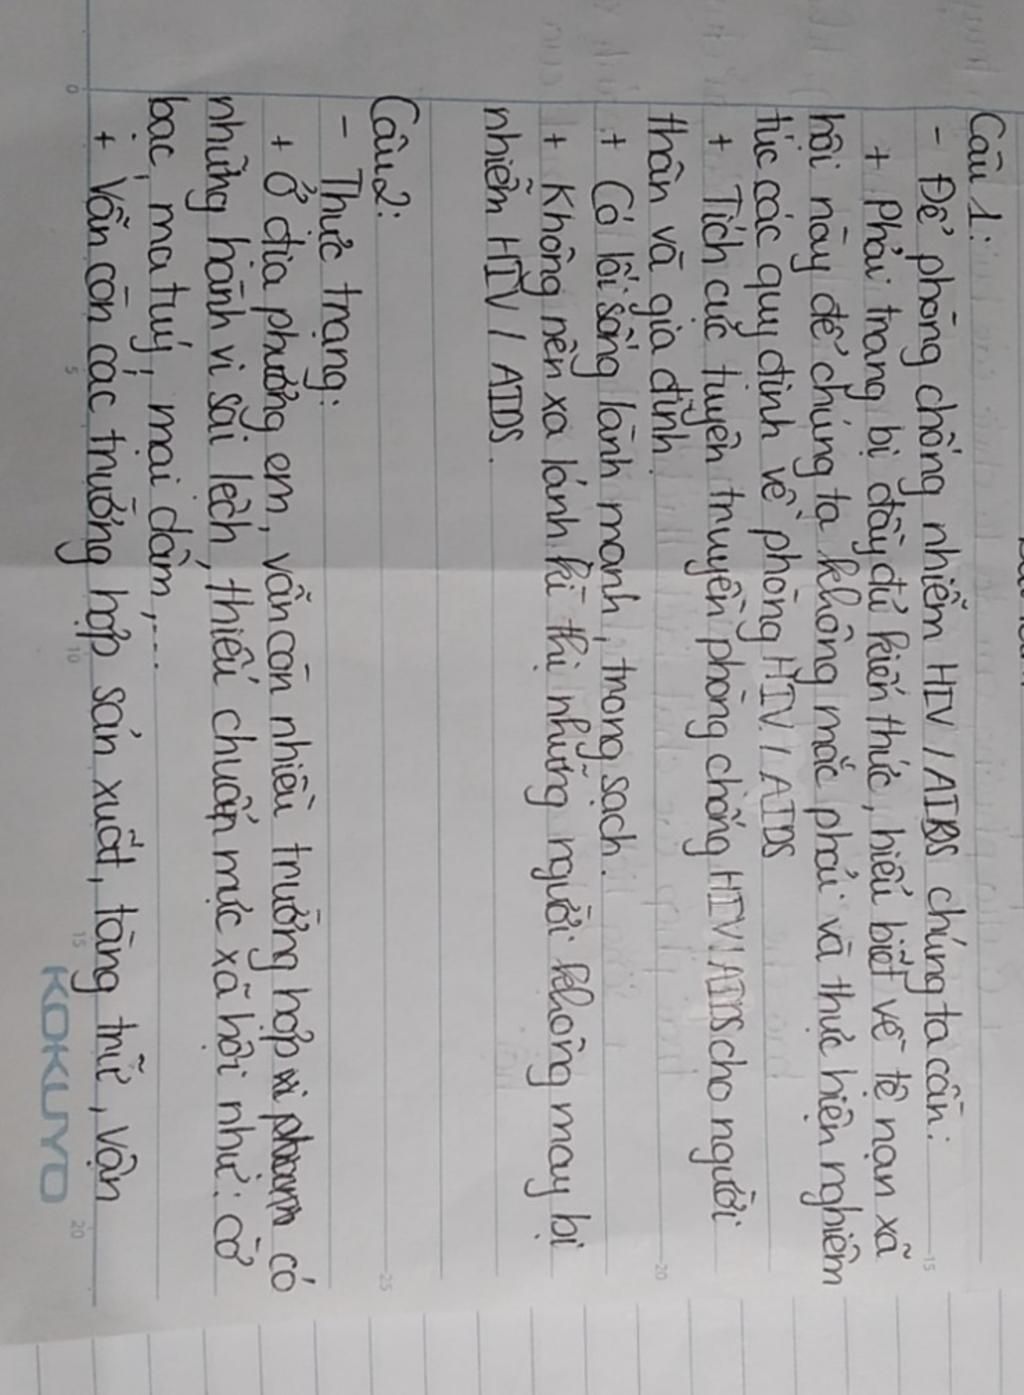 Câu 1:
- Để phòng chống nhiễm HIV / AIDS chúng ta cần:
+ Phải trang bị đầy đủ kiến thức, hiểu biết về tệ nạn xã
hội này để chúng ta không mắc phải và thực hiện nghiêm
túc các quy định về phòng HIV / AIDS
+ Tích cực tuyên truyền phòng chống HIV / AIDS cho người
thân và gia đình.
+ Có lối sống lành mạnh, trong sạch.
+ Không nên xa lánh kì thị những người không may bị
nhiễm HIV / AIDS.
Câu 2:
- Thực trạng:
+ Ở địa phương em, vẫn còn nhiều trường hợp có
những hành vi sai lệch, thiếu chuẩn mực xã hội như: cờ
bạc, ma tuý, mại dâm,...
+ Vẫn còn các trường hợp sản xuất, tàng trữ, vận
KOKUYO
0
5
10
15
20
15
20
25